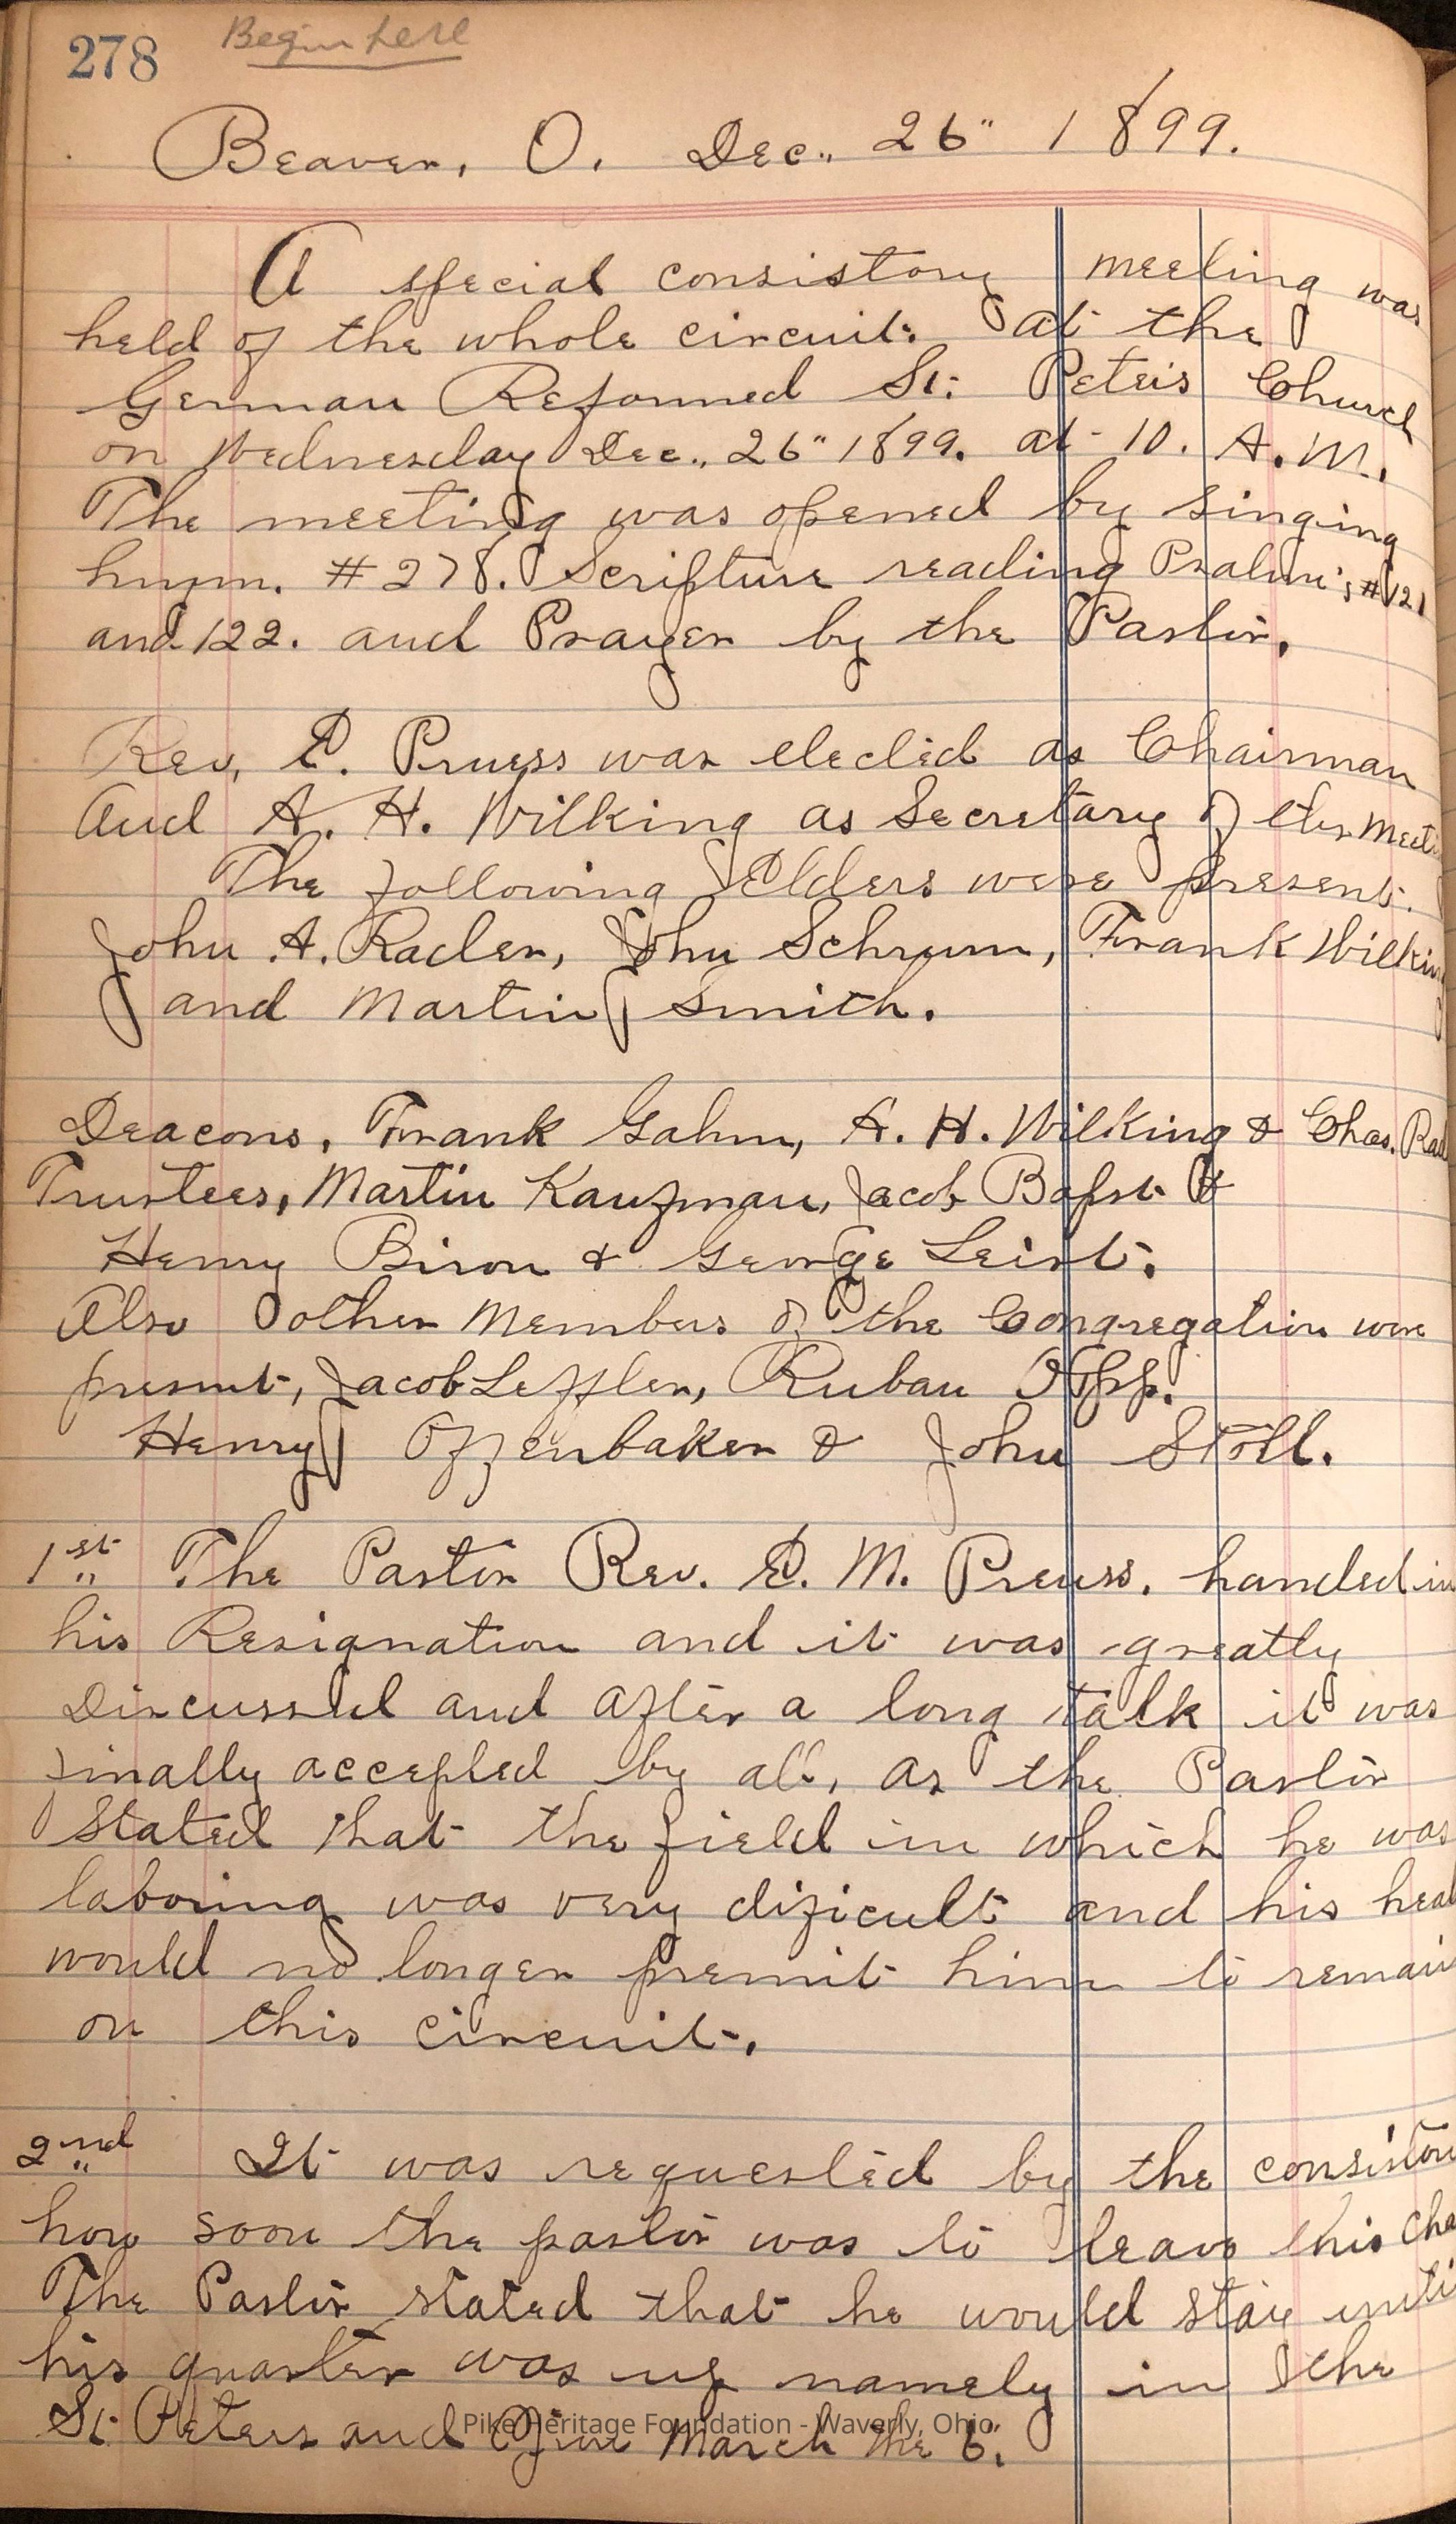 278 Begin here
Beaver, O. Dec., 26" 1899.
A special consistory meeting was
held of the whole circuit. at the
German Reformed St. Peteis Church
on Wednesday Dec., 26" 1899. at 10. A. M.
The meeting was opened by singing
hmm. #278. Scripture reading Psalm's #121
and 122. and Prayer by the Pastor.
Rev, E. Pruess was elected as Chairman
And A. H. Wilking as Secretary of this Meeti
The following Elders were present.
John A. Rader, John Schrum, Frank Wilking
and Martin Smith.
Deacons, Frank Gahm, A. H. Wilking & Chas. Rad
Trustees, Martin Kaufman, Jacob Bapst &
Henry Biron & George Leist.
Also other Members of the Congregation were
present, Jacob Leffler, Ruban Opp.
Henry Offenbaker & John Stoll.
1st The Pastor Rev. E. M. Preuss. handed in
his Resignation and it was greatly
Discussed and after a long talk it was
finally accepted by all, as the Pastor
stated that the field in which he was
laboring was very dificult and his heal
would no longer premit him to remain
on this circuit.
2nd It was requested by the consistory
how soon the pastor was to leave this Cha
The Pastor stated that he would stay until
his quarter was up namely in the
St Peters and March the 6.
Pike Heritage Foundation - Waverly, Ohio